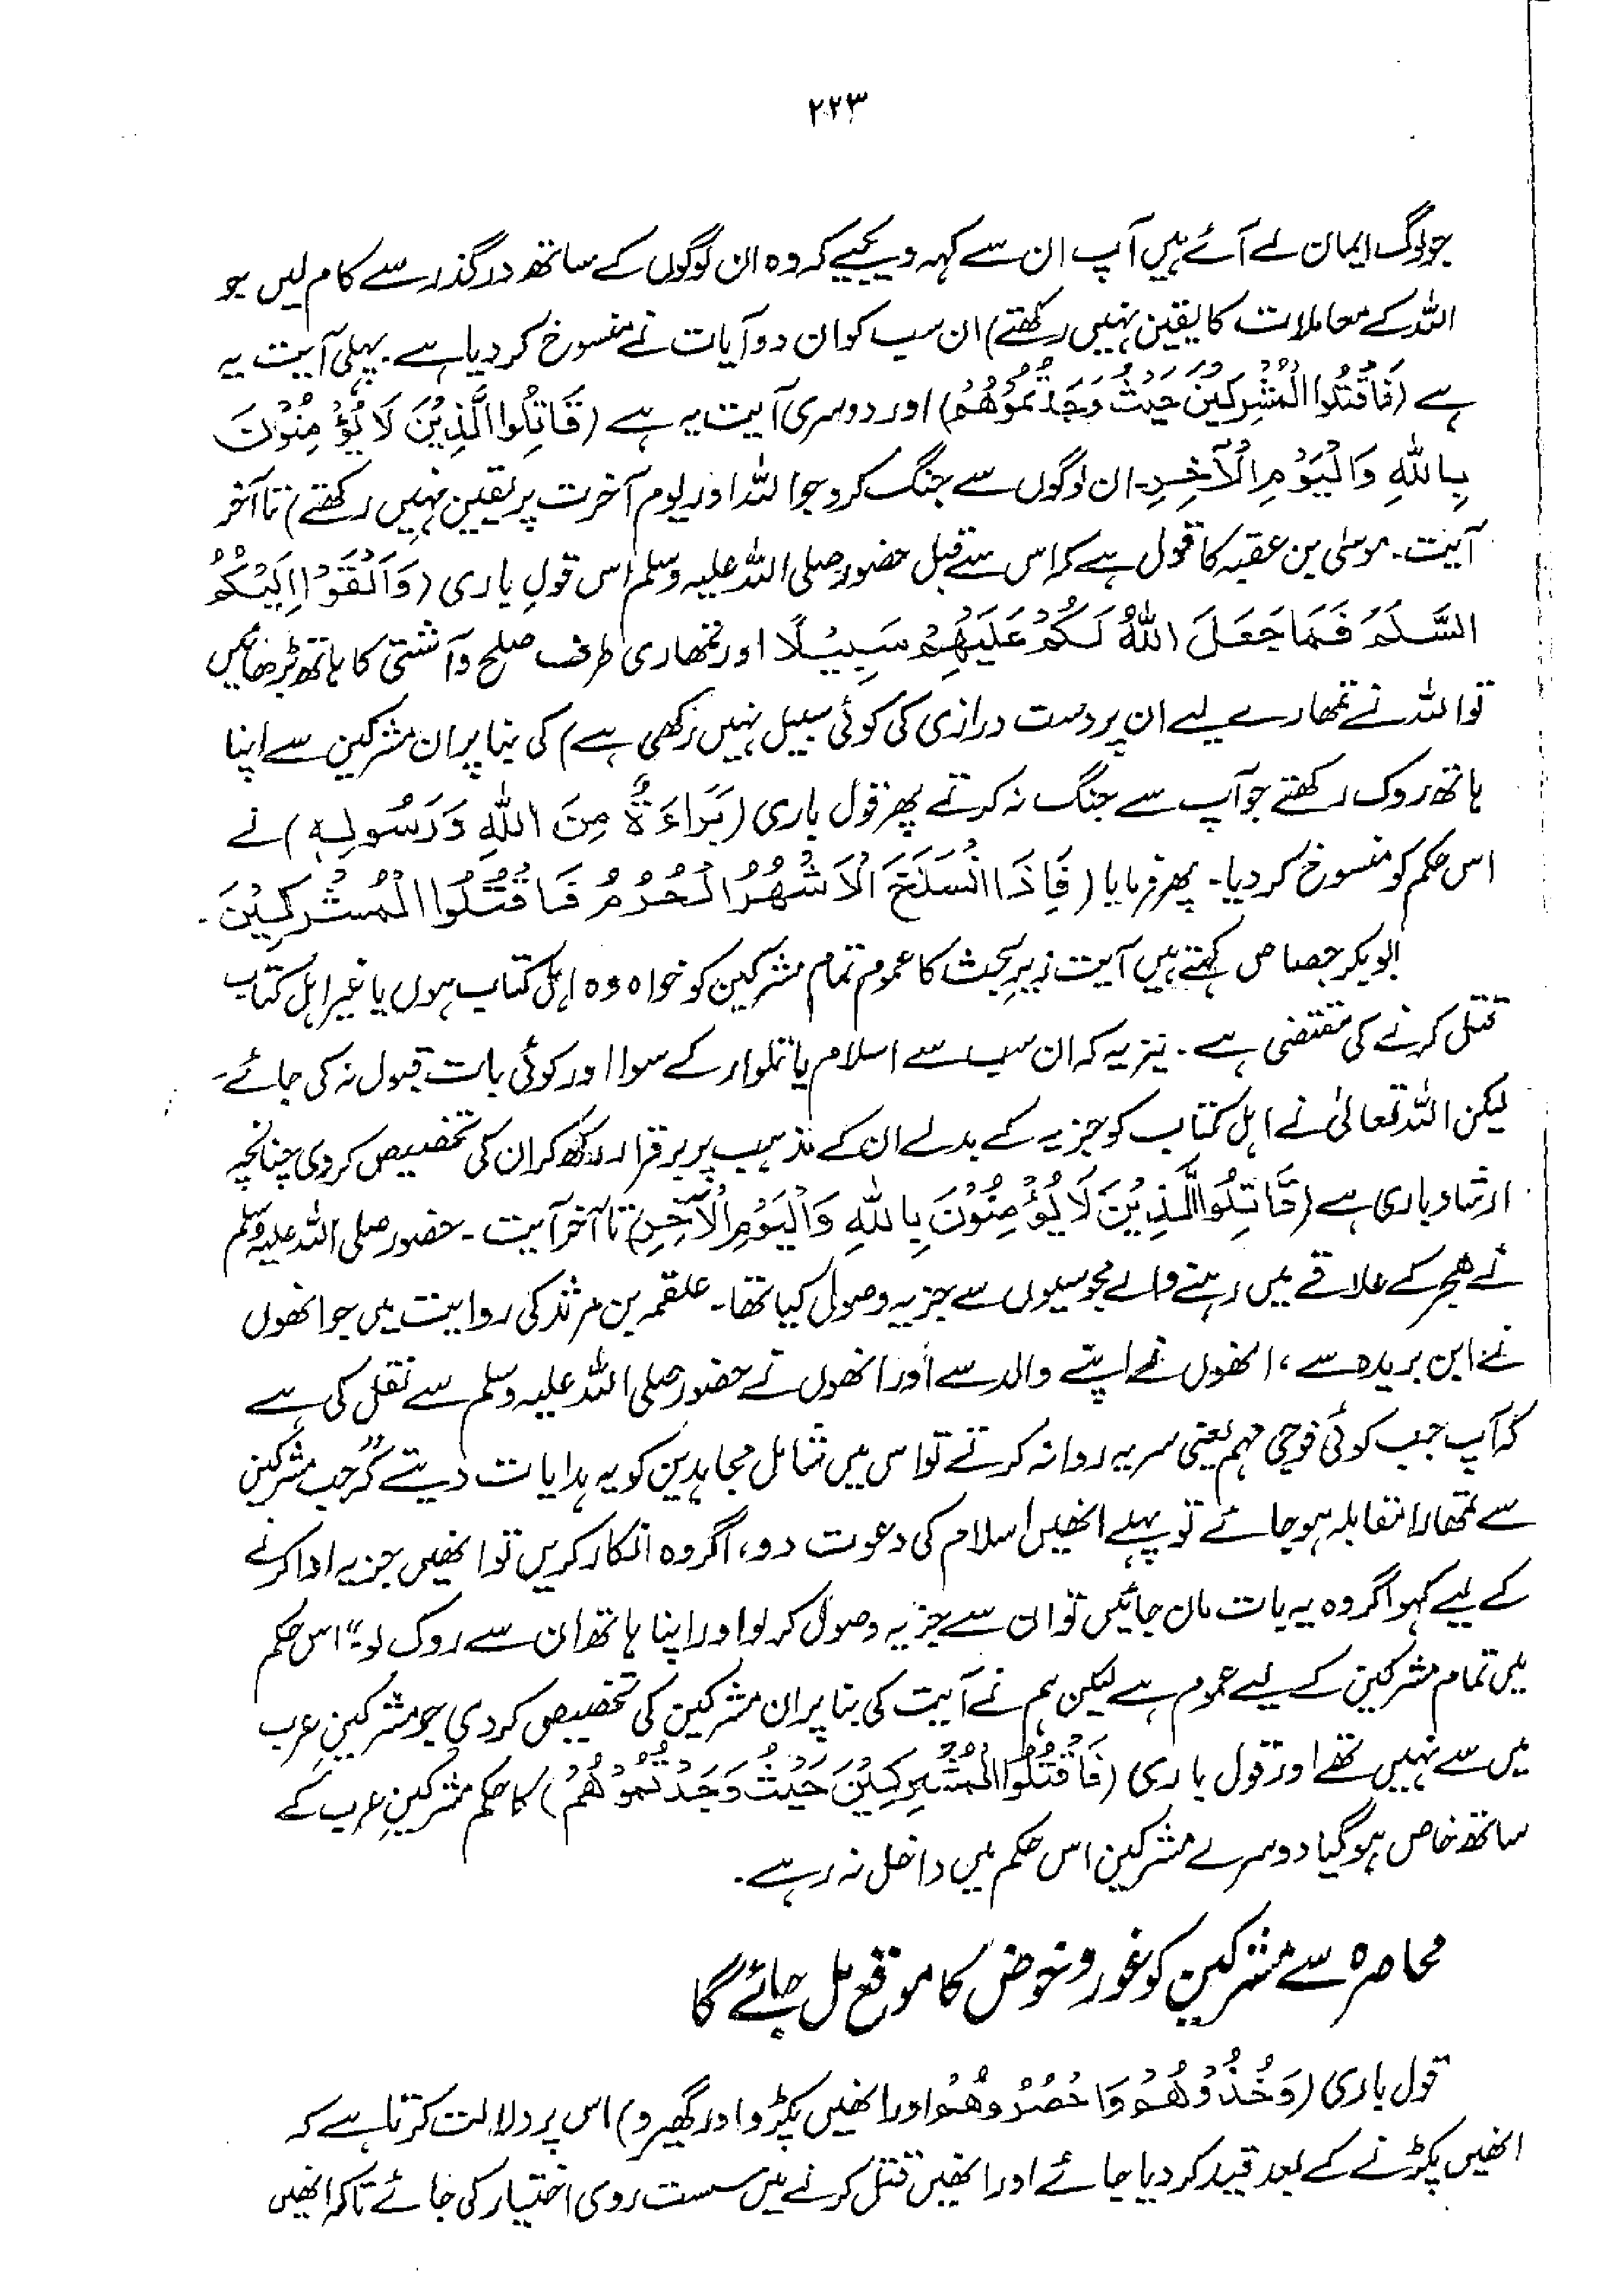 ۲۲۳
جو لوگ ایمان لے آئے ہیں آپ ان سے کہہ دیجیے کہ وہ ان لوگوں کے ساتھ درگذر سے کام لیں جو
اللہ کے معاملات کا یقین نہیں رکھتے) ان سب کو ان دو آیات نے منسوخ کر دیا ہے۔ پہلی آیت یہ
ہے (فَاقْتُلُوا الْمُشْرِكِيْنَ حَيْثُ وَجَدْتُّمُوْهُمْ) اور دوسری آیت یہ ہے (قَاتِلُوا الَّذِيْنَ لَا يُؤْمِنُوْنَ
بِاللّٰهِ وَالْيَوْمِ الْاٰخِرِ۔ ان لوگوں سے جنگ کرو جو اللہ اور یوم آخرت پر یقین نہیں رکھتے) تا آخر
آیت۔ موسیٰ بن عقبہ کا قول ہے کہ اس سے قبل حضور صلی اللہ علیہ وسلم اس قولِ باری (وَاَلْقَوْا اِلَيْكُمُ
السَّلَمَ فَمَا جَعَلَ اللّٰهُ لَكُمْ عَلَيْهِمْ سَبِيْلًا اور تمھاری طرف صلح و آشتی کا ہاتھ بڑھائیں
تو اللہ نے تمھارے لیے ان پر دست درازی کی کوئی سبیل نہیں رکھی ہے) کی بنا پر ان مشرکین سے اپنا
ہاتھ روک رکھتے جو آپ سے جنگ نہ کرتے پھر قول باری (بَرَاءَةٌ مِنَ اللّٰهِ وَرَسُولِهٖ) نے
اس حکم کو منسوخ کر دیا۔ پھر فرمایا (فَاِذَا انْسَلَخَ الْاَشْهُرُ الْحُرُمُ فَاقْتُلُوا الْمُشْرِكِيْنَ۔
ابوبکر جصاص کہتے ہیں آیت زیرِ بحث کا عموم تمام مشرکین کو خواہ وہ اہل کتاب ہوں یا غیر اہل کتاب
قتل کرنے کی مقتضی ہے۔ نیز یہ کہ ان سب سے اسلام یا تلوار کے سوا اور کوئی بات قبول نہ کی جائے۔
لیکن اللہ تعالیٰ نے اہل کتاب کو جزیہ کے بدلے ان کے مذہب پر برقرار رکھ کر ان کی تخصیص کر دی چنانچہ
ارشاد باری ہے (قَاتِلُوا الَّذِيْنَ لَا يُؤْمِنُوْنَ بِاللّٰهِ وَالْيَوْمِ الْاٰخِرِ) تا آخر آیت۔ حضور صلی اللہ علیہ وسلم
نے ھجر کے علاقے میں رہنے والے مجوسیوں سے جزیہ وصول کیا تھا۔ علقمہ بن مرثد کی روایت میں جو انھوں
نے ابن بریدہ سے، انھوں نے اپنے والد سے اور انھوں نے حضور صلی اللہ علیہ وسلم سے نقل کی ہے
کہ آپ جب کوئی فوجی مہم یعنی سریہ روانہ کرتے تو اس میں شامل مجاہدین کو یہ ہدایات دیتے کہ "جب مشرکین
سے تمھارا مقابلہ ہو جائے تو پہلے انھیں اسلام کی دعوت دو، اگر وہ انکار کریں تو انھیں جزیہ ادا کرنے
کے لیے کہو اگر وہ یہ بات مان جائیں تو ان سے جزیہ وصول کر لو اور اپنا ہاتھ ان سے روک لو۔" اس حکم
میں تمام مشرکین کے لیے عموم ہے لیکن ہم نے آیت کی بنا پر ان مشرکین کی تخصیص کر دی جو مشرکینِ عرب
میں سے نہیں تھے اور قول باری (فَاقْتُلُوا الْمُشْرِكِيْنَ حَيْثُ وَجَدْتُّمُوْهُمْ) کا حکم مشرکینِ عرب کے
ساتھ خاص ہو گیا دوسرے مشرکین اس حکم میں داخل نہ رہے۔
محاصرہ سے مشرکین کو غور و خوض کا موقع مل جائے گا
قول باری (وَخُذُوْهُمْ وَاحْصُرُوْهُمْ اور انھیں پکڑو اور گھیرو) اس پر دلالت کرتا ہے کہ
انھیں پکڑنے کے بعد قید کر دیا جائے اور انھیں قتل کرنے میں سست روی اختیار کی جائے تاکہ انھیں